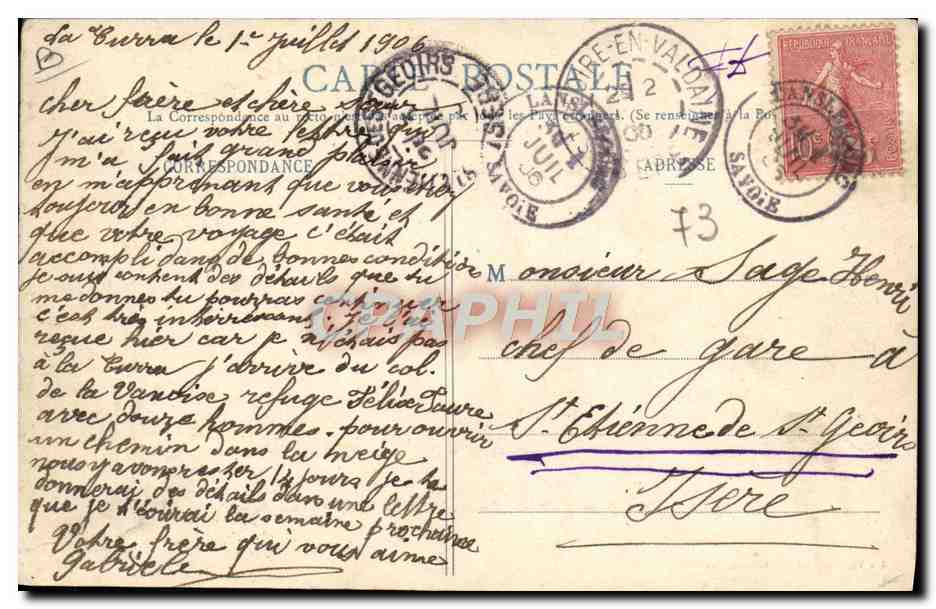 La Turra le 1er Juillet 1906
B
CARTE POSTALE
cher frère et chère sœur
La Correspondance au recto n'est pas acceptée par tous les Pays étrangers. (Se renseigner à la Poste)
J'ai reçu votre lettre qui
m'a fait grand plaisir
CORRESPONDANCE
ADRESSE
m'apprenant que vous
toujours en bonne santé et
que votre voyage c'était
accompli dans de bonnes condition
je suis content des détails que tu
me donnes tu pourras continuer
c'est très interressant. Je l'ai
reçue hier car je n'étais pas
à la Turra j'arrive du col.
de la Vanoise refuge Félix Faure
avec douze hommes. pour ouvrir
un chemin dans la neige
nous y avons rester 14 jours je te
donnerai des détails dans une lettre
que je t'écrirai la semaine prochaine
Votre frère qui vous aime
Gabriele
73
Monsieur Sage Henri
chef de gare à
St Etienne de St Geoirs
Isère
REPUBLIQUE FRANÇAISE
10c
LANSLEBOURG
SAVOIE
LANSLEBOURG
JUIL
06
SAVOIE
ST ETIENNE DE ST GEOIRS
ISERE
-EN-VALDAINE
CPAPHIL